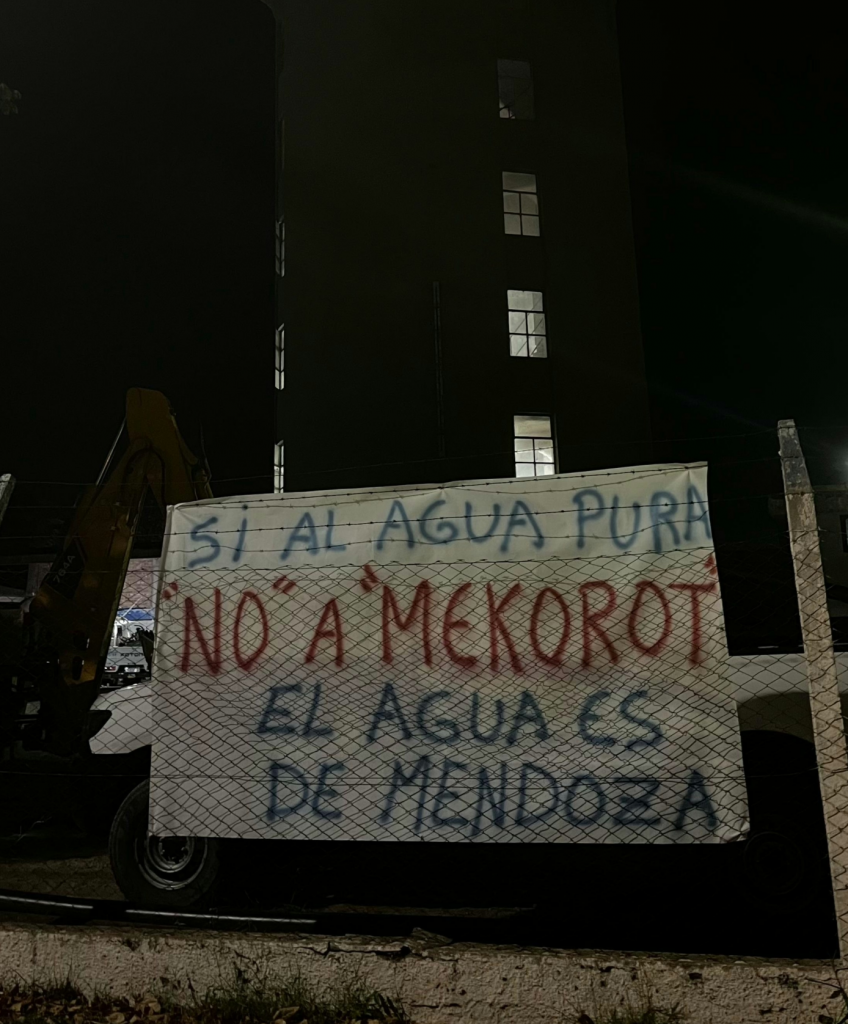 SI AL AGUA PURA
"NO" A "MEKOROT"
EL AGUA ES
DE MENDOZA